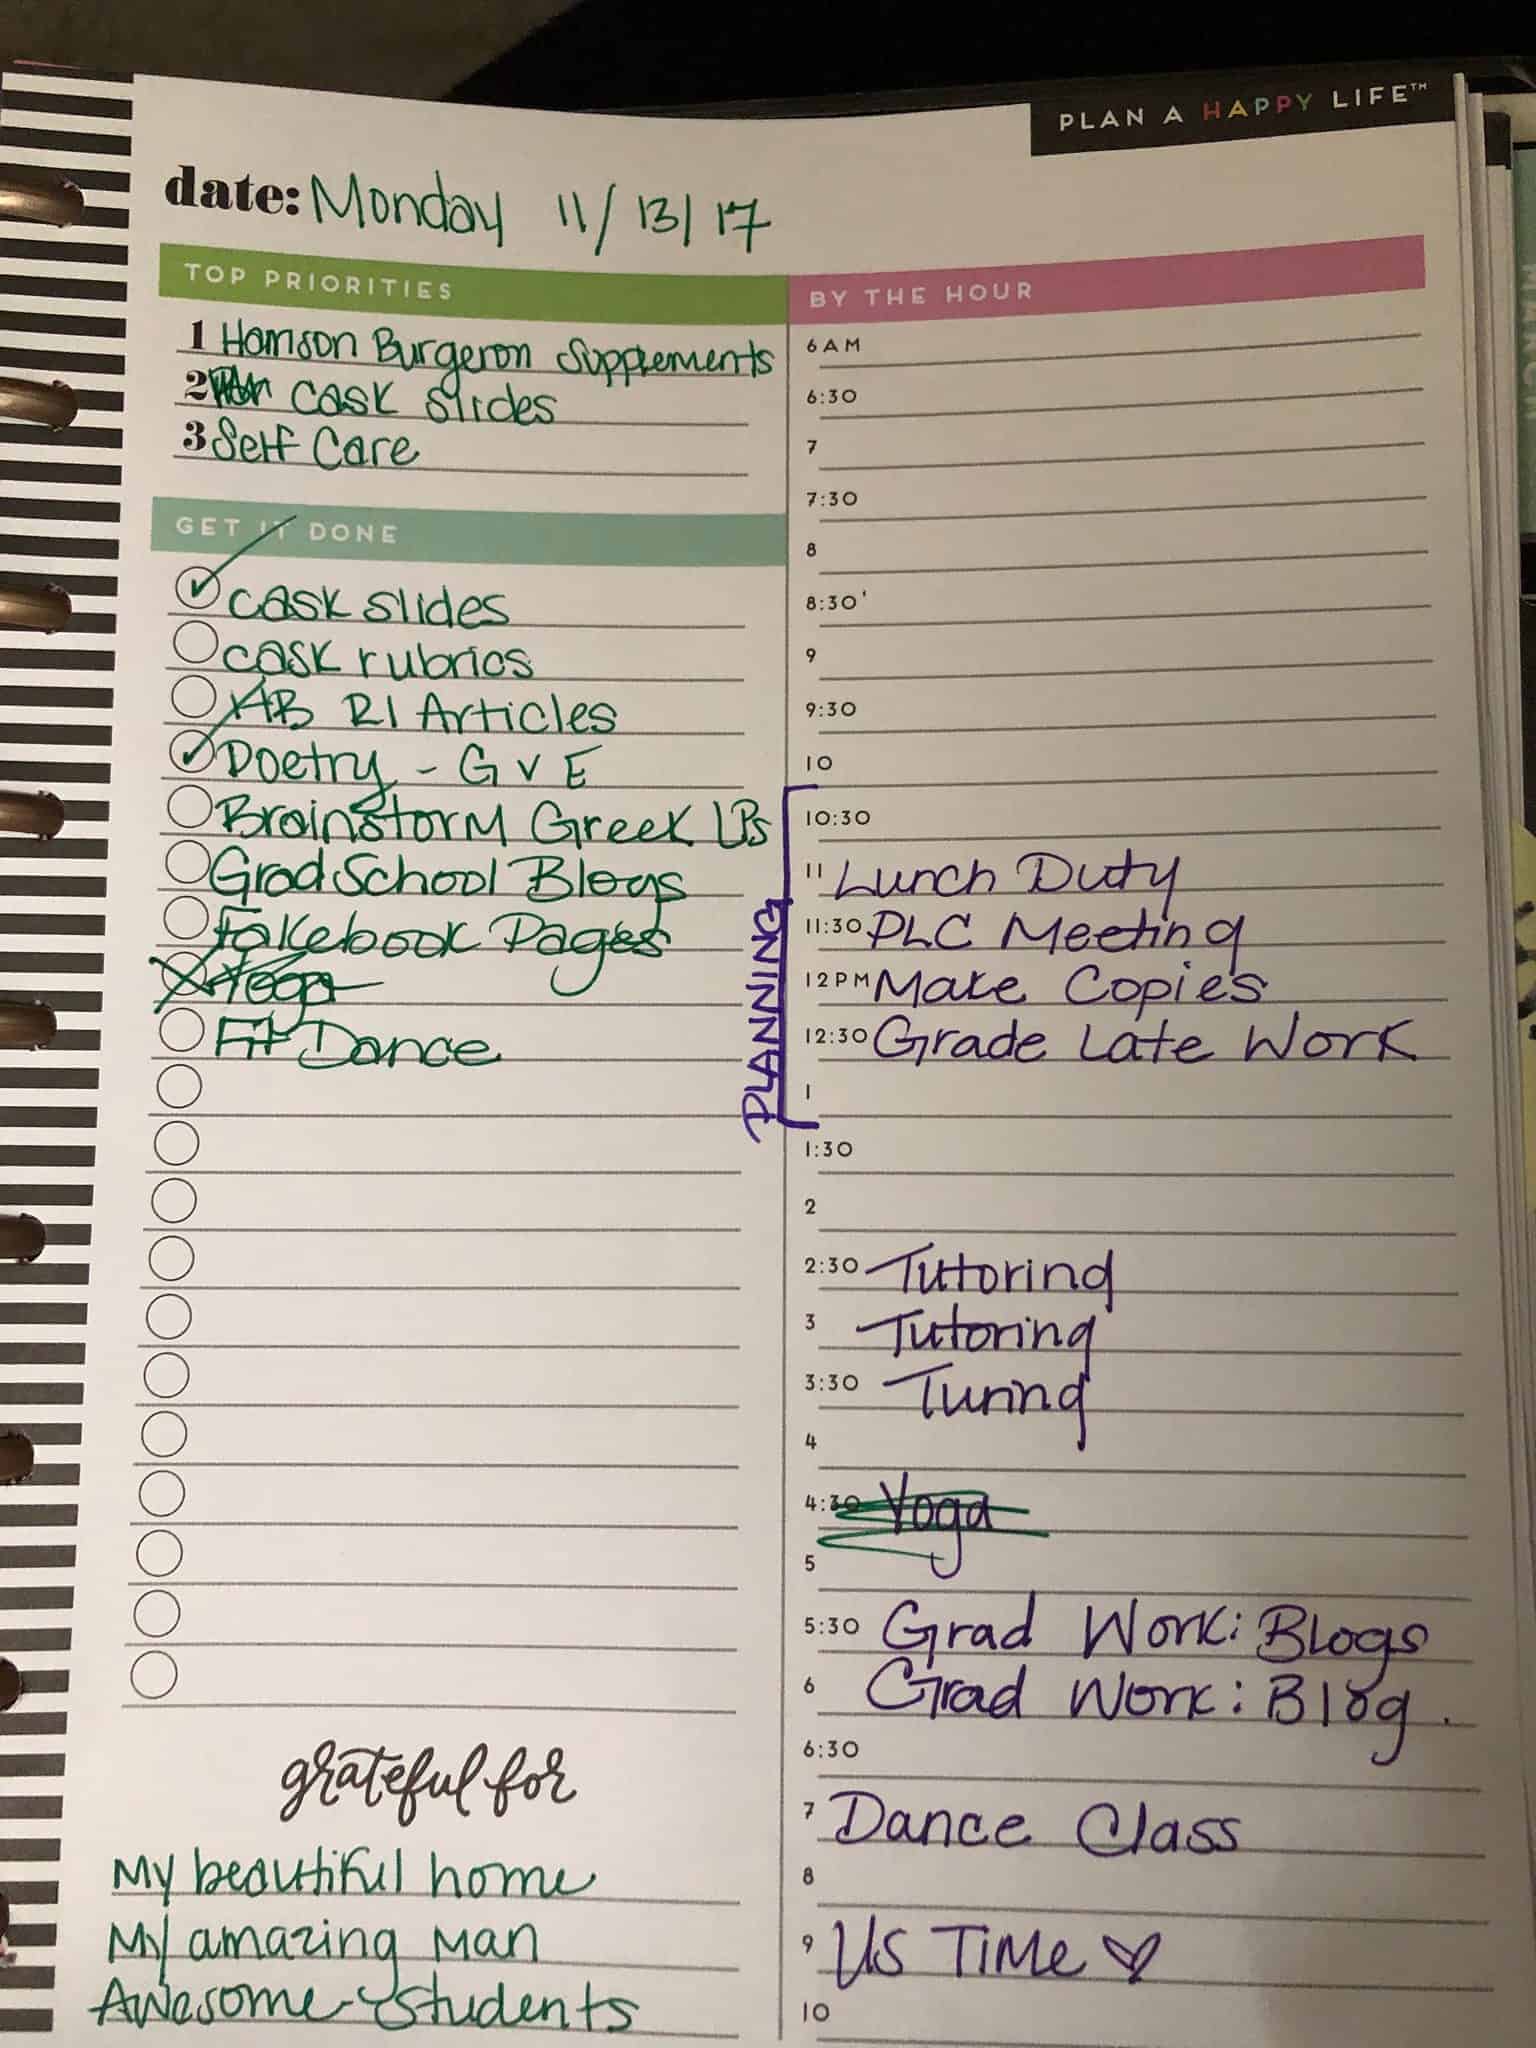 PLAN A HAPPY LIFE™
date: Monday 11/13/17
TOP PRIORITIES
1 Hamson Burgeron Supplements
2 Cask Slides
3 Self Care
GET IT DONE
Cask slides
Cask rubrics
AB RI Articles
Poetry - G v E
Brainstorm Greek LPs
Grad School Blogs
Fakebook Pages
Yoga
Fit Dance
grateful for
My beautiful home
My amazing man
Awesome students
BY THE HOUR
PLANNING
6AM
6:30
7
7:30
8
8:30
9
9:30
10
10:30
11 Lunch Duty
11:30 PLC Meeting
12PM Make Copies
12:30 Grade Late Work
1
1:30
2
2:30 Tutoring
3 Tutoring
3:30 Turing
4
4:30 Yoga
5
5:30 Grad Work: Blogs
6 Grad Work: Blog.
6:30
7 Dance Class
8
9 US TIME
10